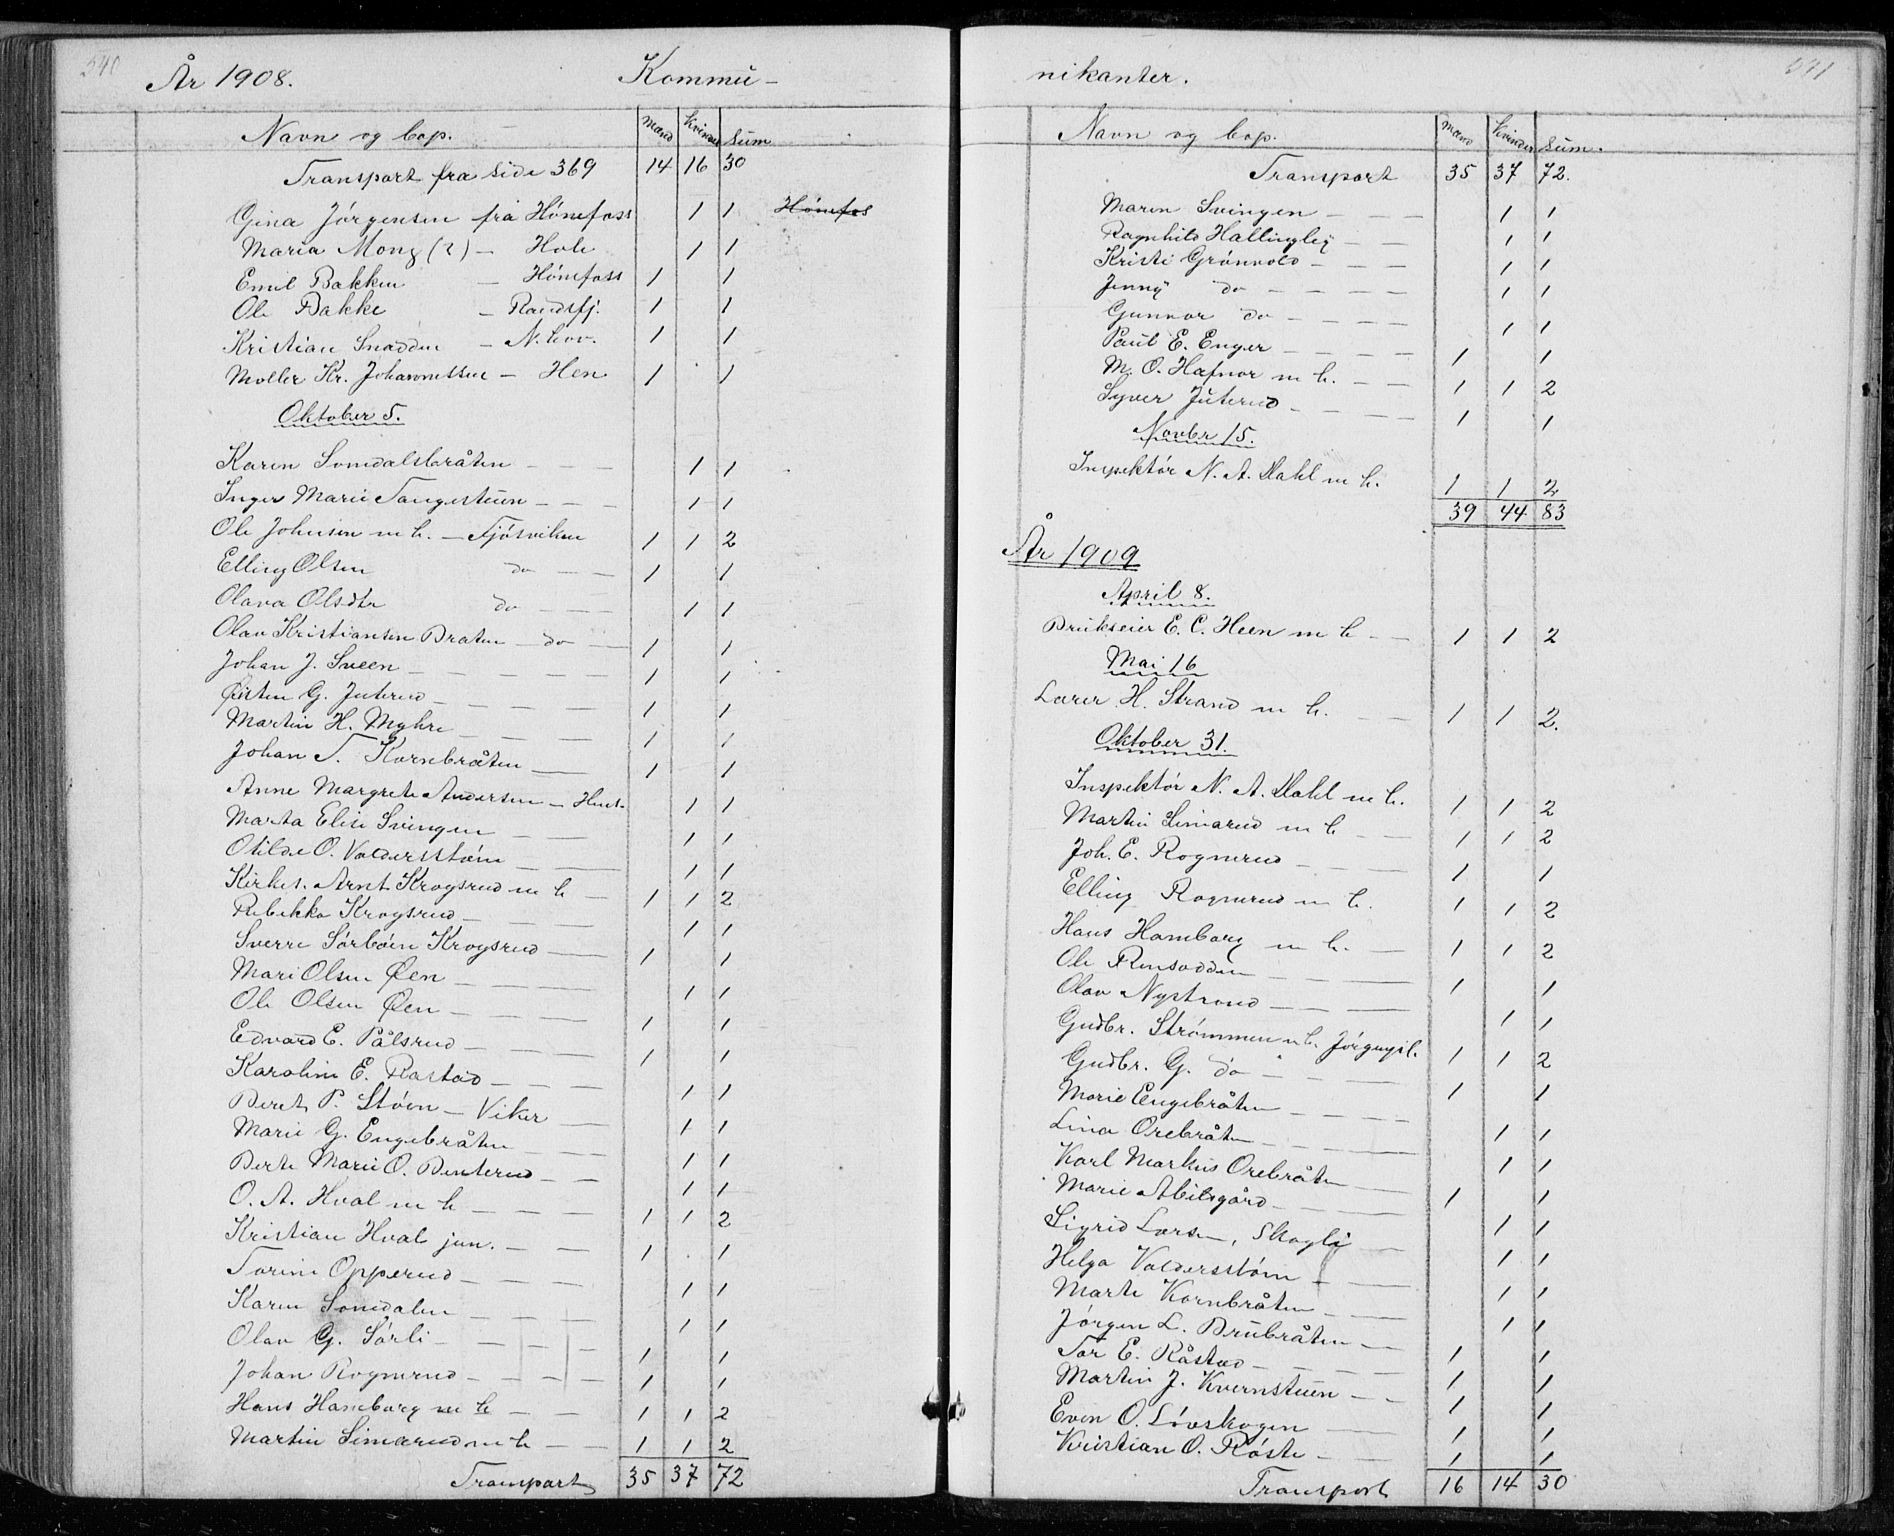 540
År 1908. Kommu-
Navn og bop. Mænd Kvinder Sum
Transport fra side 369 14 16 30
Gina Jørgensen frå Hönefoss 1 1 Hönefos
Maria Mong (?) - Hole 1 1
Emil Bakken - Hönefoss 1 1
Ole Bakke - Randsfj. 1 1
Kristian Snadden - N. hov. 1 1
Møller Kr. Johannessen - Hen 1 1
Oktober 5.
Karen Somdalsbråten - - - 1 1
Inger Marie Tangestuen - - - 1 1
Ole Johnsen m h. - Tjösviken 1 1 2
Elling Olsen do - - 1 1
Olava Olsdtr do - - - 1 1
Olav Kristiansen Braten - do - 1 1
Johan J. Sveen - - - - - - 1 1
Østen G. Juterud - - - - - 1 1
Martin H. Myhre - - - - 1 1
Johan T. Kornbråten - - 1 1
Anne Margrete Andersen - Hus. 1 1
Marta Elise Svingen - - 1 1
Otilde O. Valdersstøen - - 1 1
Kirkes. Arnt Krogsrud m h - 1 1 2
Rebekka Krogsrud - - - - 1 1
Sverre Sörböen Krogsrud - - 1 1
Mari Olsen Øen - - - - 1 1
Ole Olsen Øen - - - - 1 1
Edvard E. Pålsrud - - - - 1 1
Karoline E. Rastad - - - - 1 1
Beret P. Stöen - Viker - 1 1
Marie G. Engebråten - - 1 1
Berte Marie O. Benterud - - 1 1
O. A. Hval m h - - - 1 1 2
Kristian Hval jun. - - 1 1
Torine Opperud - - - - 1 1
Karen Somdalen - - - 1 1
Olav G. Sörli - - - - - 1 1
Johan Rognerud - - - - 1 1
Hans Hamborg m h - - 1 1 2
Martin Simarud m h - - 1 1 2
Transport 35 37 72
541
nikanter.
Navn og bop. Mænd Kvinder Sum.
Transport 35 37 72.
Maren Svingen - - - 1 1
Ragnhild Hallingby - - 1 1
Kristi Grönvold - - - 1 1
Jenny do - - - - 1 1
Gunvor do - - - - 1 1
Paul E. Enger - - - - 1 1
M. O. Hafnor m h. - - 1 1 2
Syver Juterud - - - - 1 1
Novbr 15.
Inspektör N. A. Dahl m h. 1 1 2
39 44 83
År 1909
April 8.
Brukseier E. C. Heen m h - - 1 1 2
Mai 16
Lærer H. Strand m h. - - 1 1 2.
Oktober 31.
Inspektör N. A. Dahl m h. 1 1 2
Martin Simarud m h - - 1 1 2
Joh. E. Rognerud - - - 1 1
Elling Rognerud m h. 1 1 2
Hans Hamborg m h. - 1 1 2
Ole Rensodden - - - 1 1
Olav Nystrand - - - 1 1
Gudbr. Strömmen m h. 1 1 2
Gudbr. G. do - - - 1 1
Marie Engebråten - - - 1 1
Lina Orebråten - - - 1 1
Karl Markus Orebråten - 1 1
Marie Abilsgård - - - 1 1
Sigrid Larsen, Skogli - 1 1
Helga Valdersstöen - - 1 1
Marte Kornbråten - - 1 1
Jörgen L. Brubråten - - 1 1
Tor E. Råstad - - - - 1 1
Martin J. Kvernstuen - - 1 1
Even O. Lövskogen - - 1 1
Kristian O. Röste - - 1 1
Transport 16 14 30